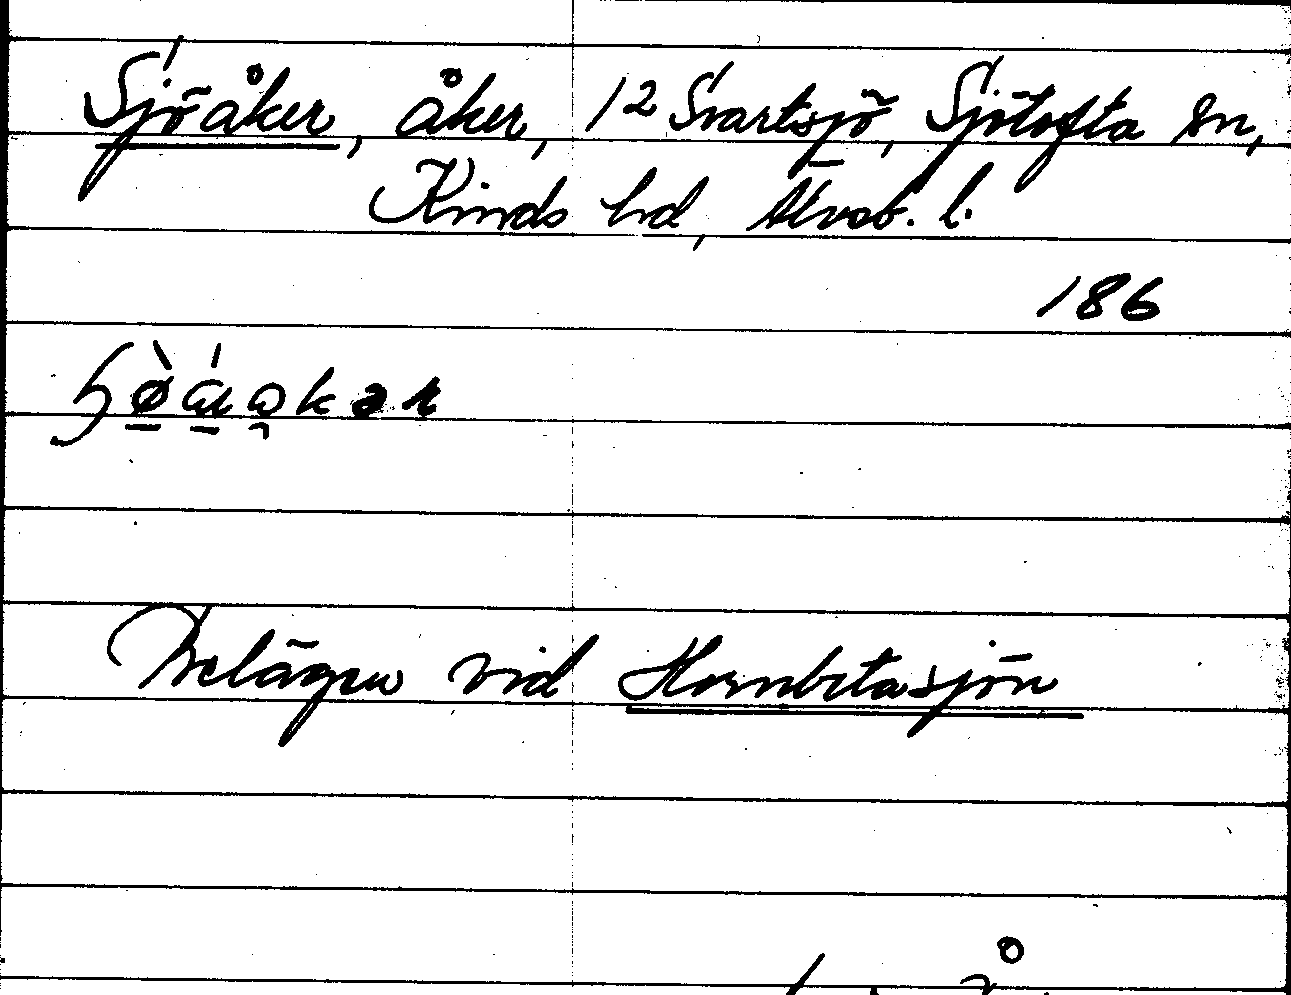 Sjöåker, åker, 12 Svartsjö, Sjötofta sn,
Kinds hd, Älvsb. l.
186
Belägen vid Hornbetasjön